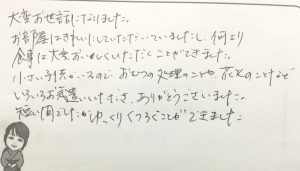 大変お世話になりました。
お部屋はきれいにしていただいていましたし、何より
食事は大変おいしくいただくことができました。
小さい子供がいるので、おむつの処理のことや、花火のことなど
いろいろお気遣いいただき、ありがとうございました。
短い間でしたがゆっくりくつろぐことができました。